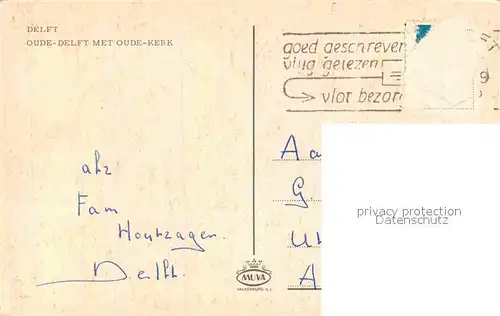 DELFT
OUDE-DELFT MET OUDE-KERK
goed geschreven
vlug gelezen
vlot bezor
afz
Fam
Houtzager.
Delft.
Aa
G.
A
MUVA
VALKENBURG (L.)
privacy protection
Datenschutz